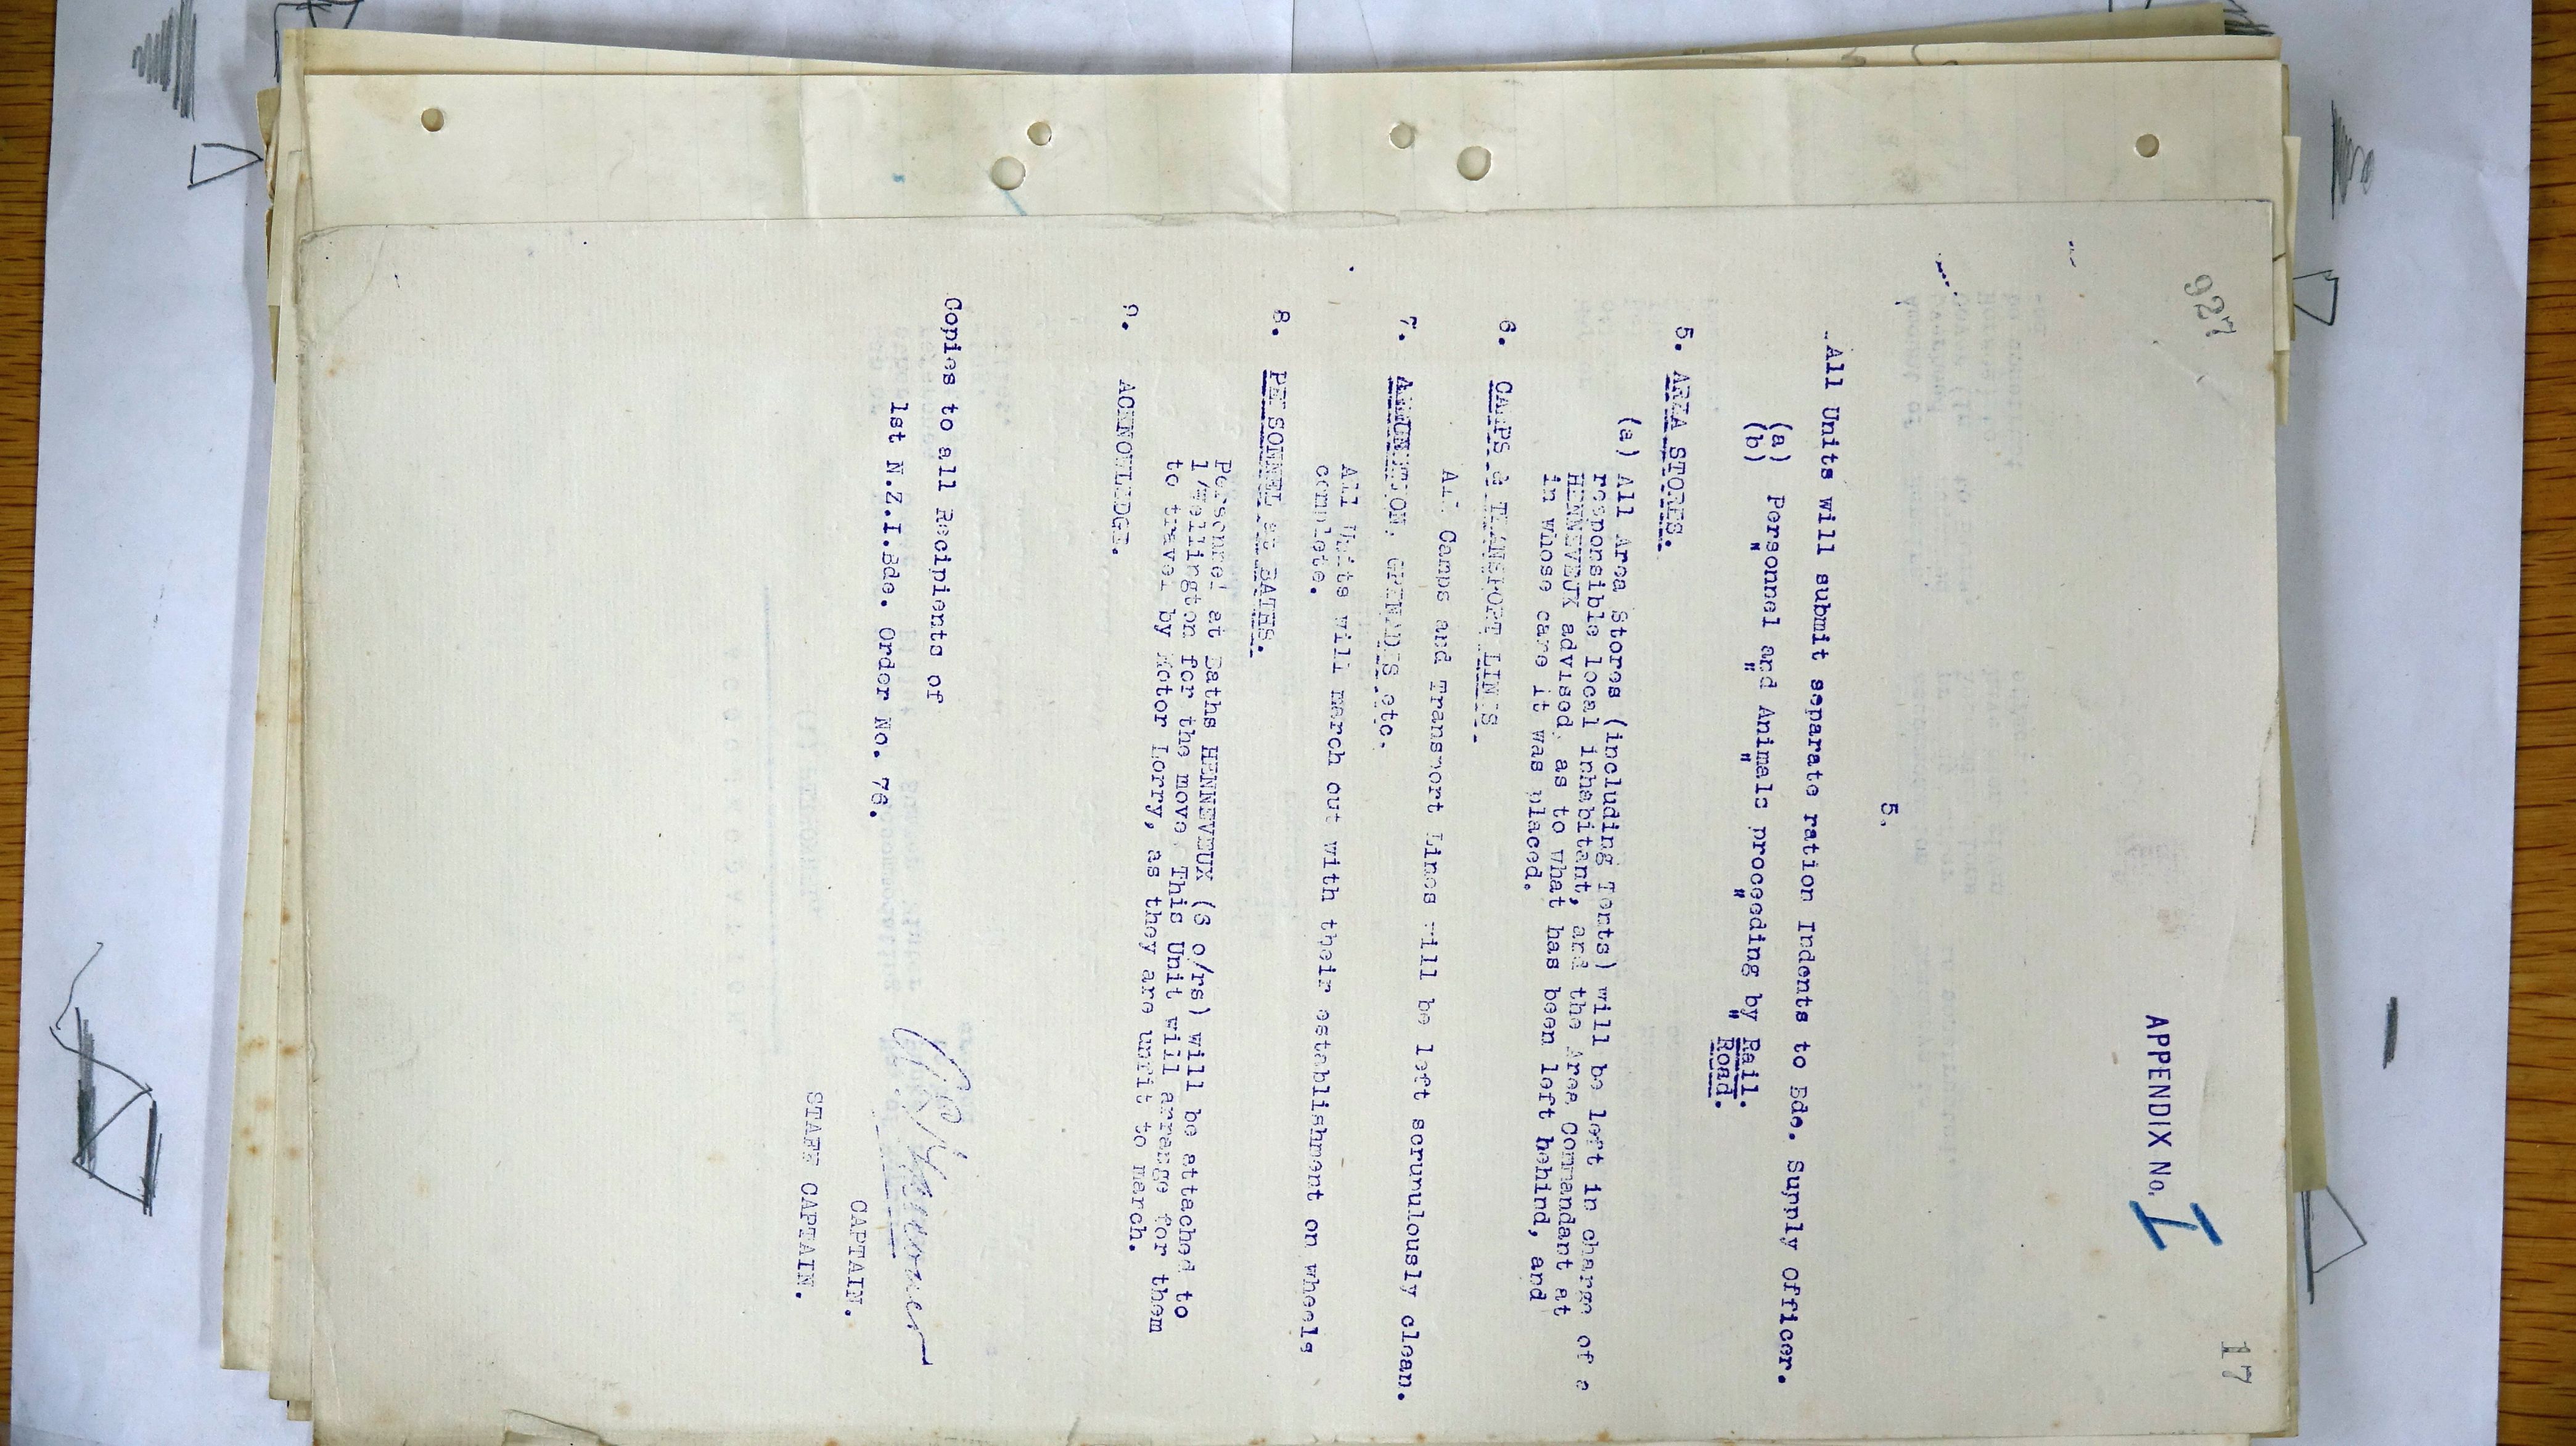 927
17
APPENDIX No. I
5.
All Units will submit separate ration Indents to Bde. Supply Officer.
(a) Personnel and Animals proceeding by Rail.
(b) " " " " " Road.
5. AREA STORES.
(a) All Area Stores (including Tents) will be left in charge of a
responsible local inhabitant, and the Area Commandant at
HENNEVEUX advised, as to what has been left behind, and
in whose care it was placed.
6. CAMPS & TRANSPORT LINES.
All Camps and Transport Lines will be left scrupulously clean.
7. AMMUNITION, GRENADES etc.
All Units will march out with their establishment on wheels
complete.
8. PERSONNEL at BATHS.
Personnel at Baths HENNEVEUX (6 o/rs) will be attached to
1/Wellington for the move. This Unit will arrange for them
to travel by Motor Lorry, as they are unfit to march.
9. ACKNOWLEDGE.
CAPTAIN.
STAFF CAPTAIN.
Copies to all Recipients of
1st N.Z.I.Bde. Order No. 76.